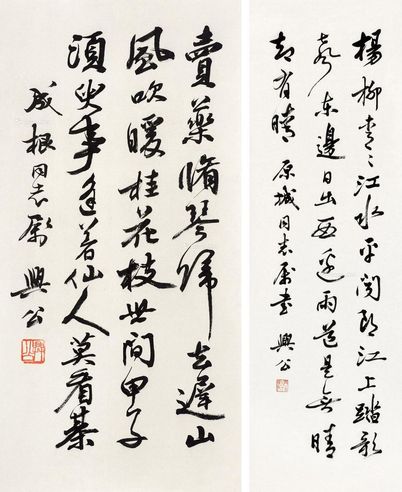 楊柳青〻江水平聞郎江上踏歌
聲東邊日出西邊雨道是無晴
却有晴 原城同志屬書 興公
賣藥脩琴歸去遲山
風吹暖桂花枝世間甲子
須臾事逢着仙人莫看棊
成根同志屬 興公